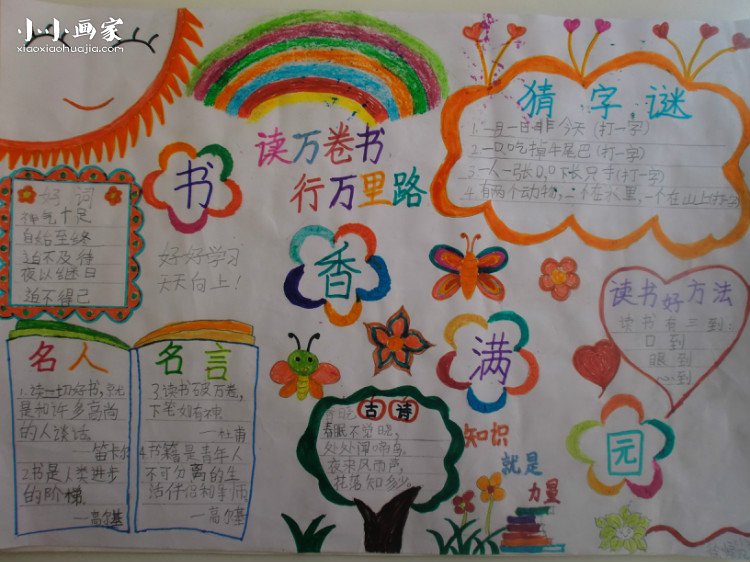 小小画家
xiaoxiaohuajia.com
读万卷书
行万里路
猜字谜
1.一月一日非今天(打一字)
2.一口吃掉牛尾巴(打一字)
3.一人一张口口下长只手(打一字)
4.有两个动物,一个在水里,一个在山上(打一字)
书
香
满
园
好词
神气十足
自始至终
迫不及待
夜以继日
迫不得已
好好学习
天天向上!
读书好方法
读书有三到:
口到
眼到
心到
名人
1.读一切好书,就
是和许多高尚
的人谈话。
—笛卡尔
2.书是人类进步
的阶梯.
—高尔基
名言
3.读书破万卷,
下笔如有神
—杜甫
4.书籍是青年人
不可分离的生
活伴侣和导师.
—高尔基
古诗
春晓
春眠不觉晓,
处处闻啼鸟。
夜来风雨声,
花落知多少。
知识
就是
力量